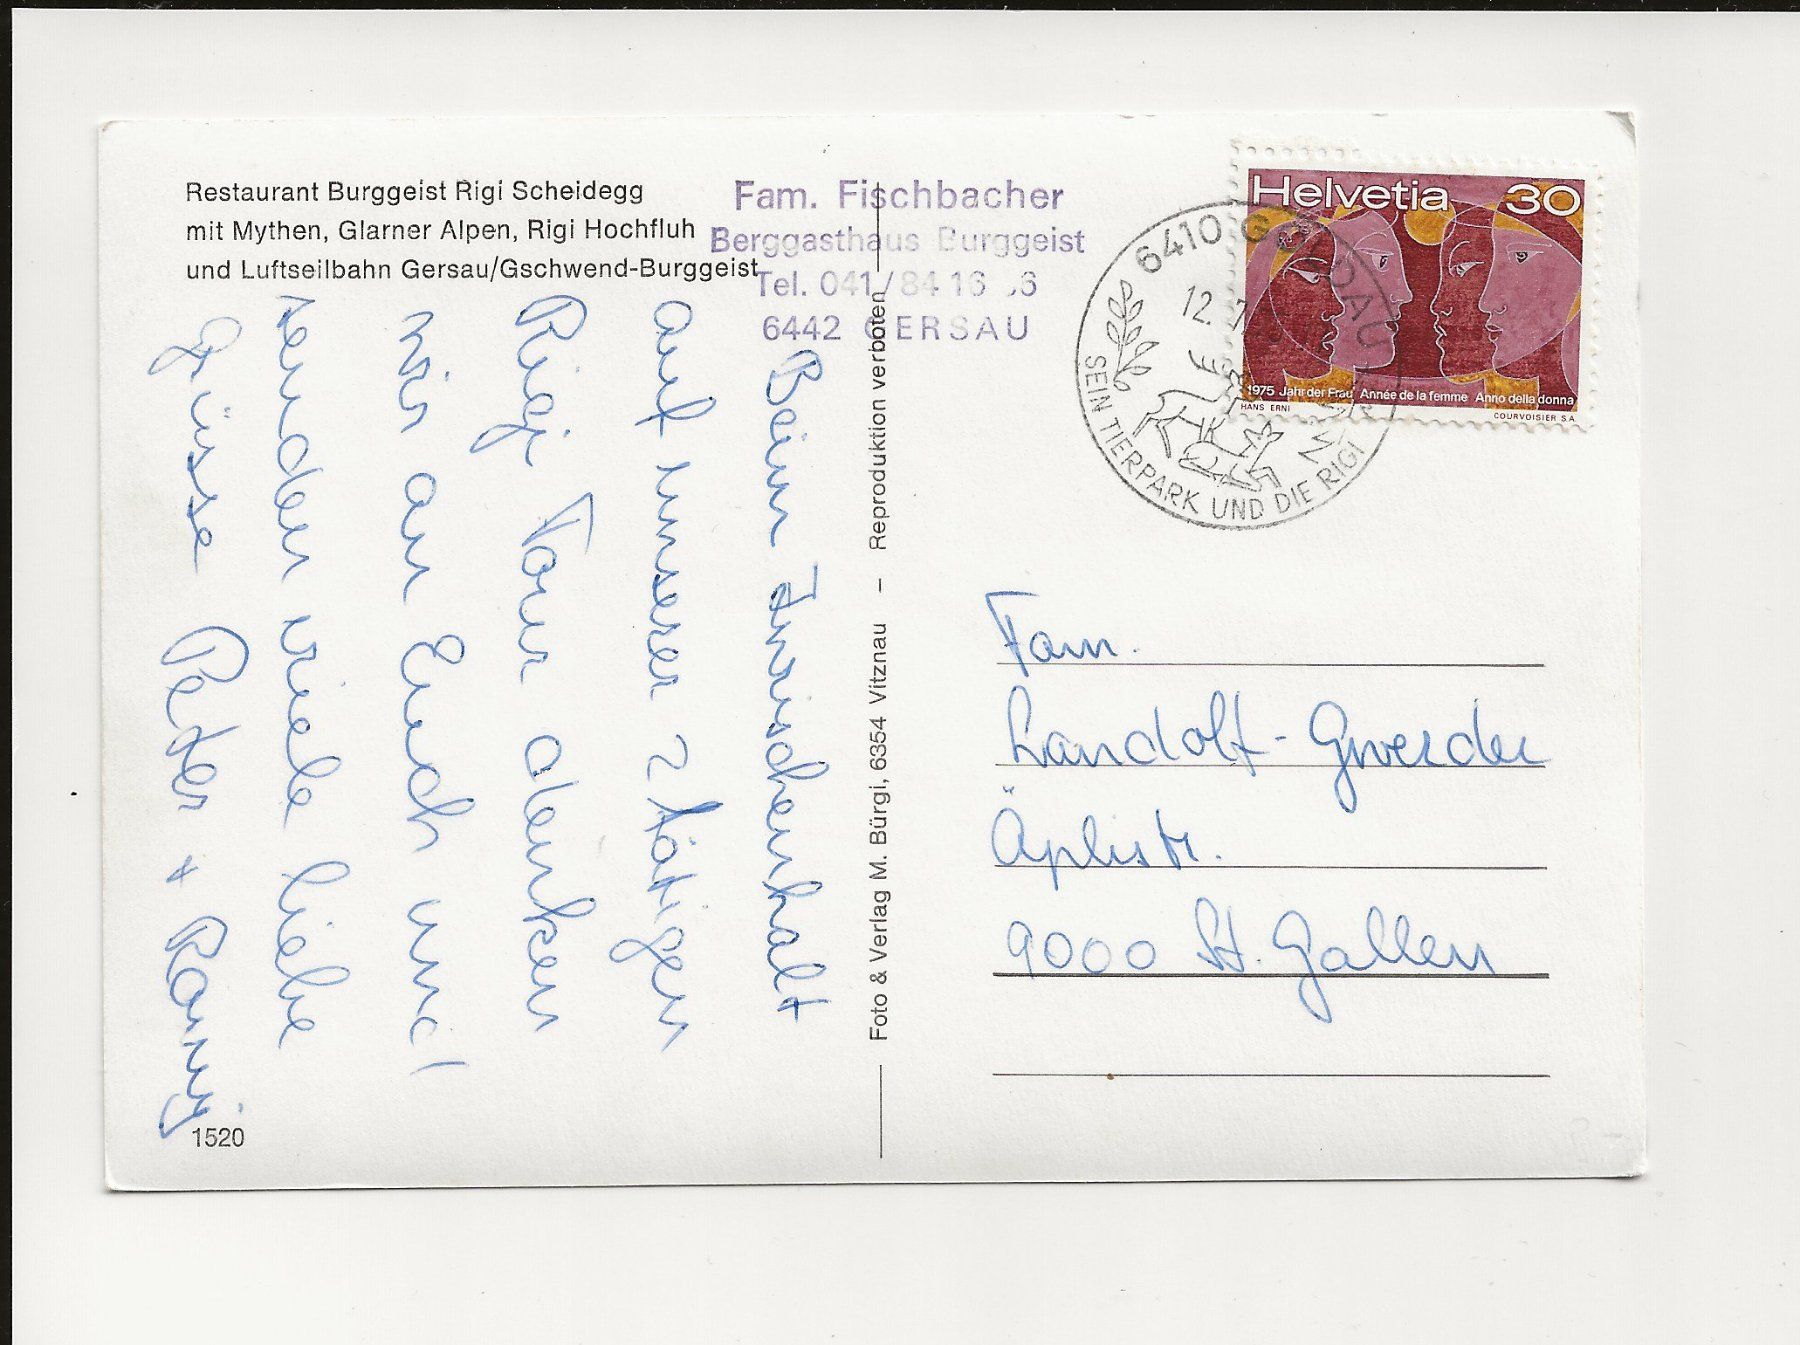 Restaurant Burggeist Rigi Scheidegg
mit Mythen, Glarner Alpen, Rigi Hochfluh
und Luftseilbahn Gersau/Gschwend-Burggeist
Fam. Fischbacher
Berggasthaus Burggeist
Tel. 041/84 16
6442 GERSAU
Helvetia 30
1975 Jahr der Frau Année de la femme Anno della donna
HANS ERNI
COURVOISIER S.A.
6410 GOLDAU
12. 7
SEIN TIERPARK UND DIE RIGI
Beim Zwischenhalt
auf unserer 2 tätigen
Rigi Tour denken
wir an Euch und
senden viele liebe
Grüsse Peter +
Foto & Verlag M. Bürgi, 6354 Vitznau – Reproduktion verboten
Fam.
Landolt-Gwerder
Äplistr.
9000 St. Gallen
1520